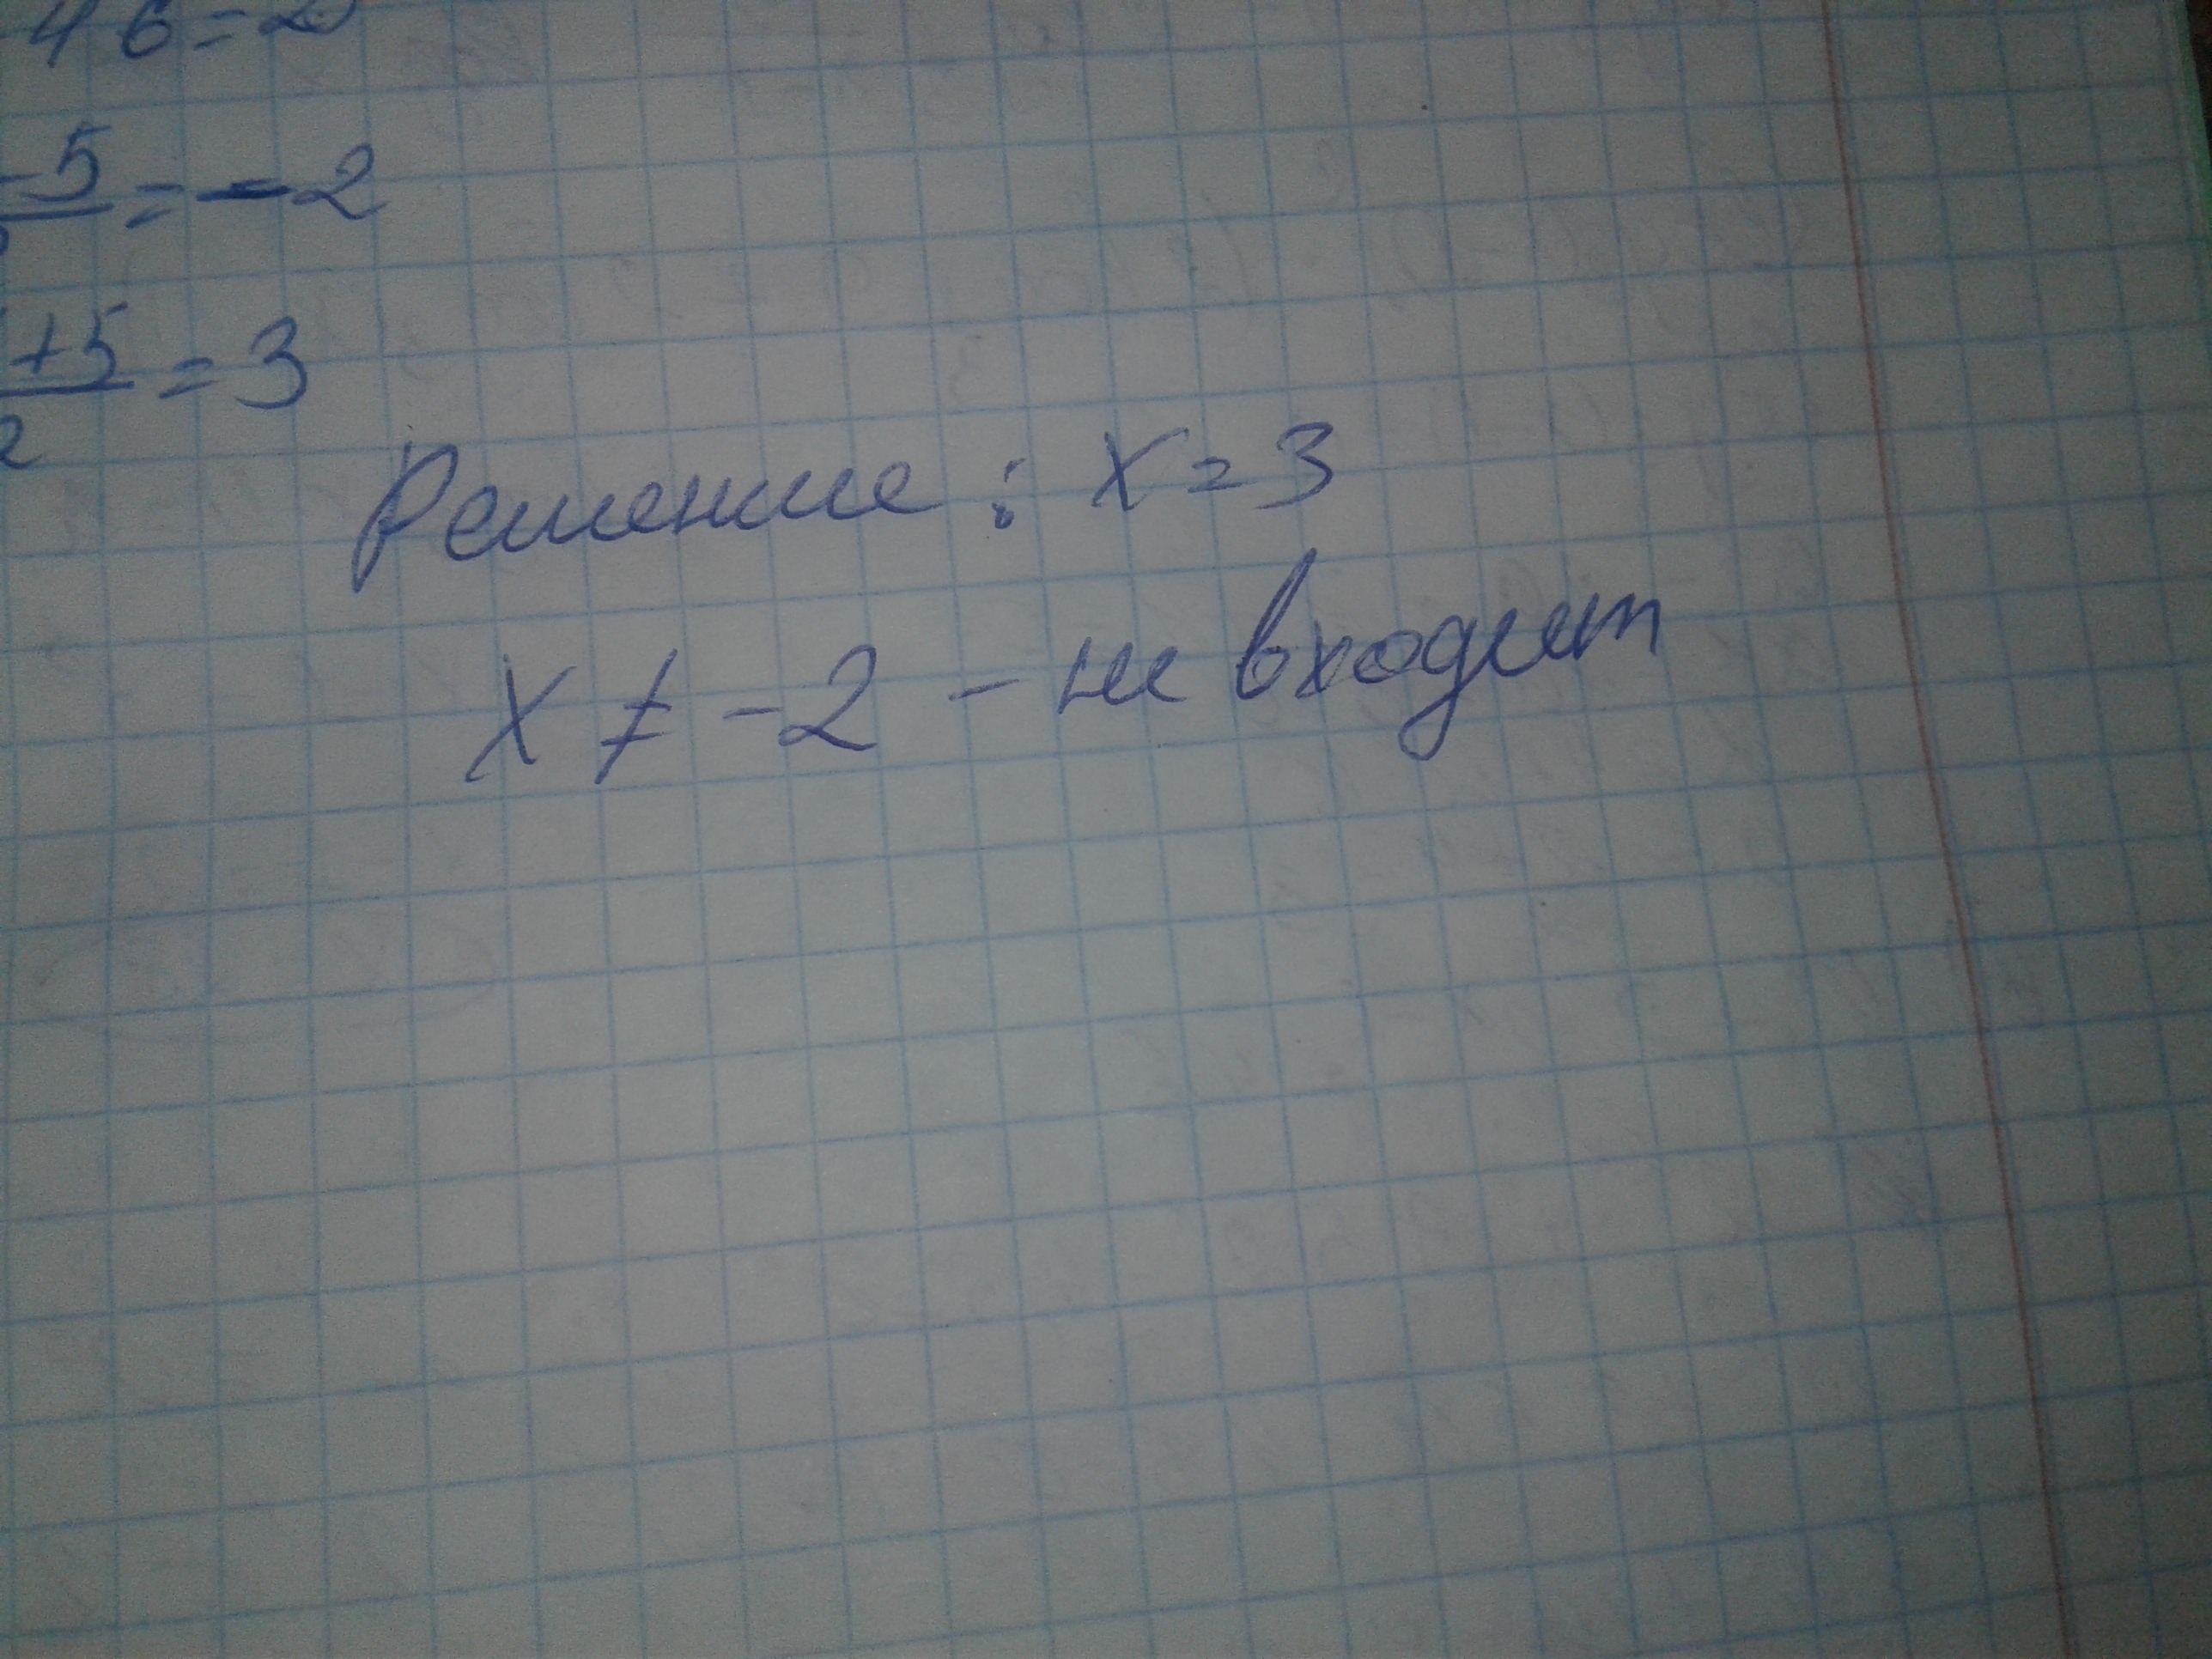 46=2
-5/ = -2
+5/2 = 3
Решение: x=3
x ≠ -2 - не входит